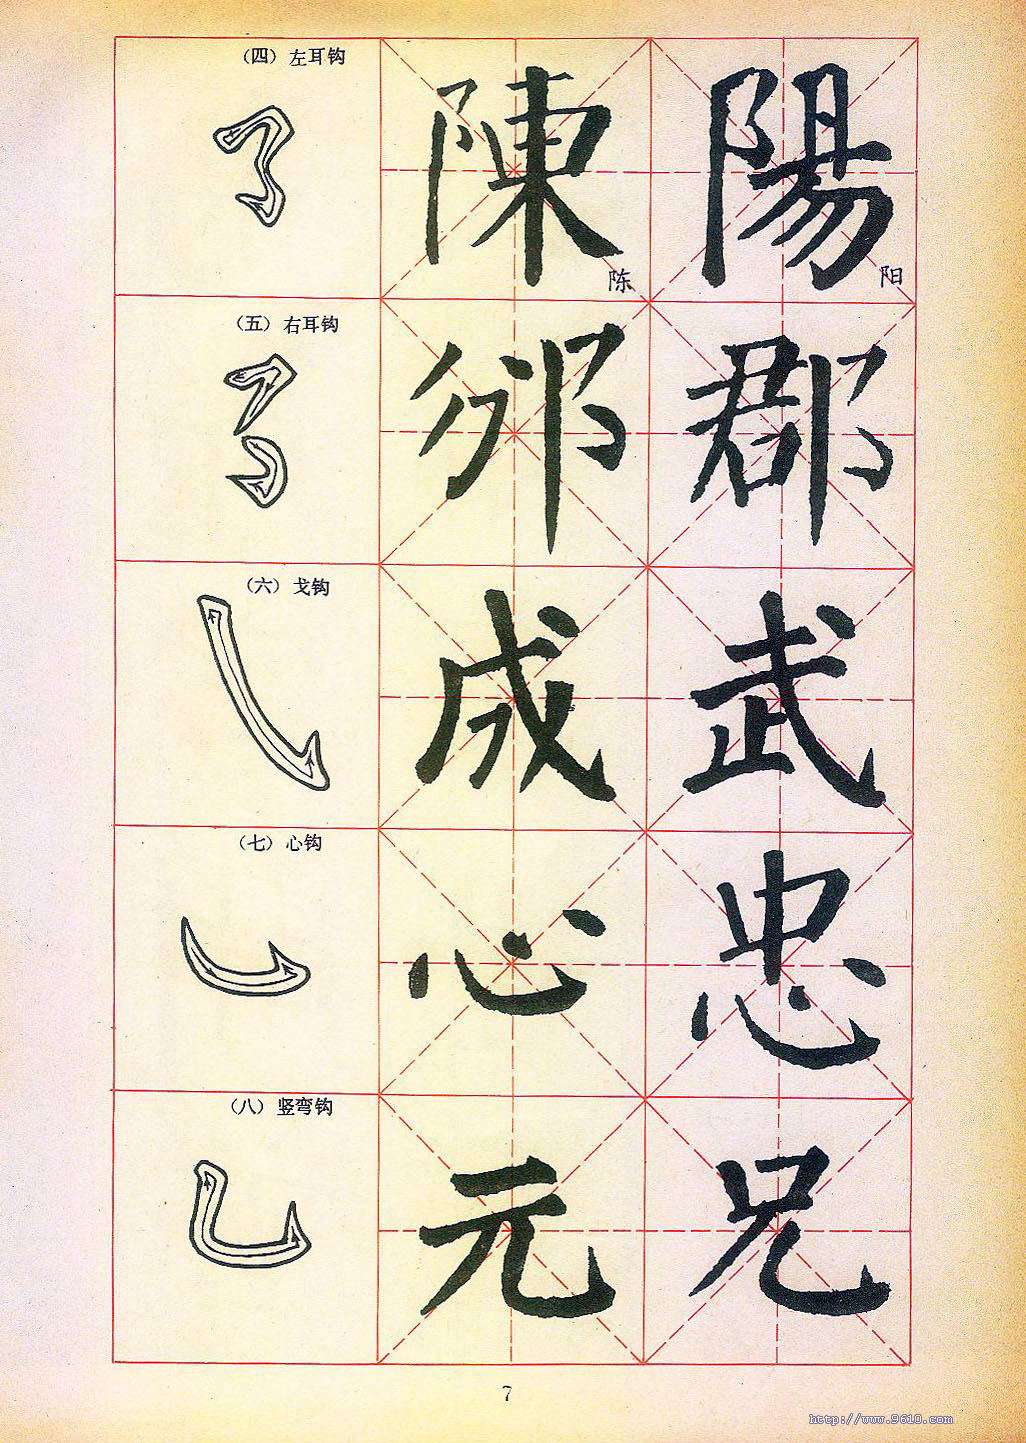 (四) 左耳钩
陳
陈
陽
阳
(五) 右耳钩
邠
郡
(六) 戈钩
成
武
(七) 心钩
心
忠
(八) 竖弯钩
元
兄
7
http://www.9610.com